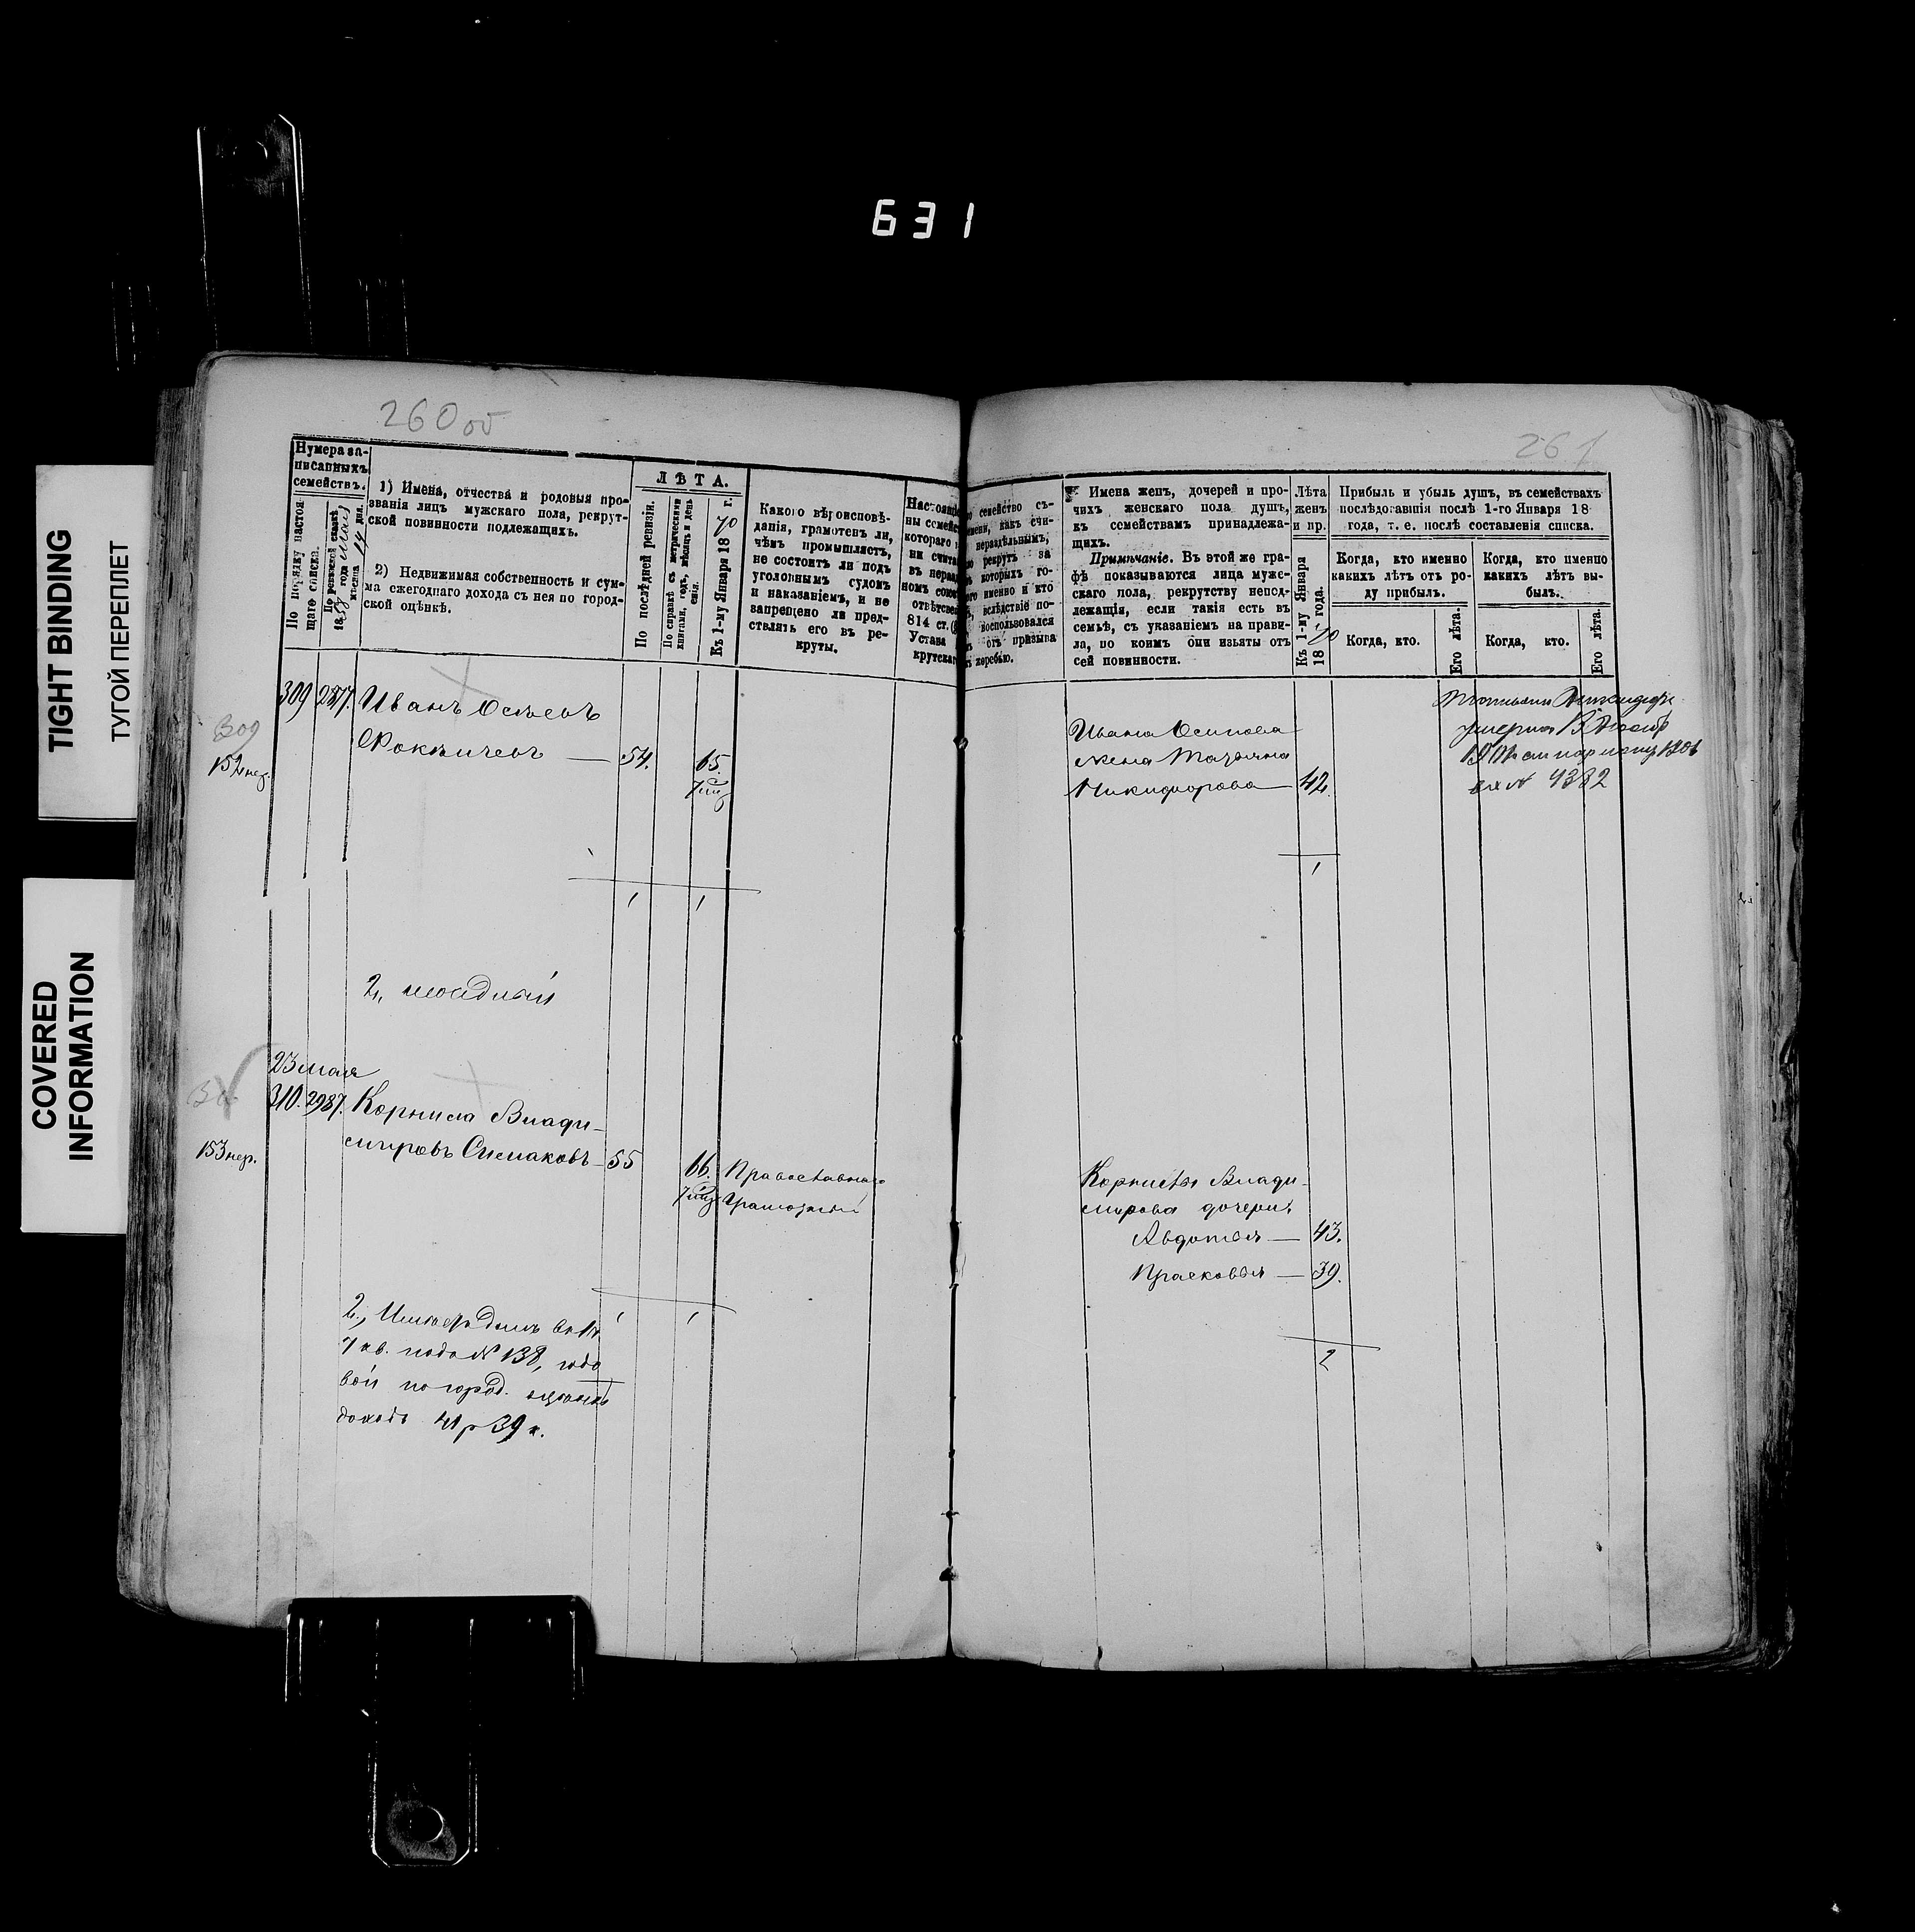 631
TIGHT BINDING
ТУГОЙ ПЕРЕПЛЕТ
COVERED
INFORMATION
260 об
Нумера за-
писанныхъ
семействъ.
По порядку настоя-
щаго списка.
По ревизской сказкѣ
18 года
мѣсяца 14 дня.
1) Имена, отчества и родовыя про-
званія лицъ мужскаго пола, рекрут-
ской повинности подлежащихъ.
2) Недвижимая собственность и сум-
ма ежегоднаго дохода съ нея по город-
ской оцѣнкѣ.
ЛѢТА.
По послѣдней ревизіи.
По справкѣ съ метрическими
книгами, годъ, мѣсяцъ и день
Къ 1-му Января 1870 г.
Какого вѣроисповѣ-
данія, грамотенъ ли,
чѣмъ промышляетъ,
не состоитъ ли подъ
уголовнымъ судомъ
и наказаніемъ, и не
запрещено ли пред-
ставлять его въ ре-
круты.
Настоящ
ны семейс
котораго
ни счита
въ нераз
номъ союз
отвѣтстве
814 ст.
Устава
крутскаг
309 2
Иванъ Осиповъ
54. 65.
309
152 нер.
1 1
2,,
23 мая
310. 2987. Корнила Влади-
мировъ Симаковъ 55 66. Православнаго
153 нер. Грамотный
1 1
2.,
кв. подъ № 138, годо
вой по город. оцѣнкѣ
доходъ 41 р 39 к.
261
семейство
имени, какъ счи-
нераздѣльнымъ,
рекрутъ за
которыхъ го-
именно и кто
вслѣдствіе по-
воспользовался
отъ призыва
жеребью.
Имена женъ, дочерей и про-
чихъ женскаго пола душъ,
къ семействамъ принадлежа-
щихъ.
Примѣчаніе. Въ этой же гра-
фѣ показываются лица муж-
скаго пола, рекрутству непод-
лежащія, если такія есть въ
семьѣ, съ указаніемъ на прави-
ла, по коимъ они изъяты отъ
сей повинности.
Лѣта
женъ
и пр.
Къ 1-му Января
1870 года.
Прибыль и убыль душъ, въ семействахъ
послѣдовавшія послѣ 1-го Января 18
года, т. е. послѣ составленія списка.
Когда, кто именно
какихъ лѣтъ отъ ро-
ду прибылъ.
Когда, кто именно
какихъ лѣтъ вы-
былъ.
Когда, кто.
Его лѣта.
Когда, кто.
Его лѣта.
Ивана Осипова
жена Татьяна
Никифорова 42.
умерла
вх № 4382
1
Корнилы Влади-
мирова дочери:
Авдотья — 43.
Прасковья — 39.
2